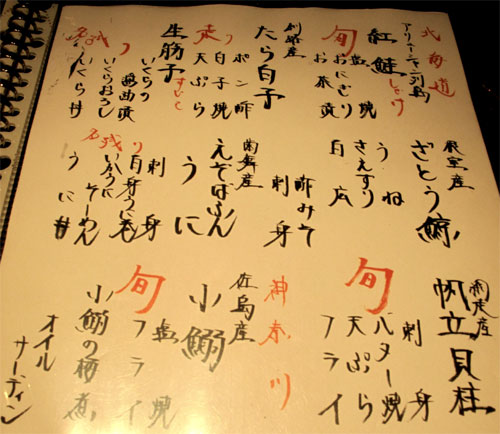 北海道
アリューシャン列島
紅鮭
旬
塩焼
おにぎり
お茶漬
釧路産
たら白子
走り
ポン酢
白子焼
天ぷら
生筋子
名残り
いくらの醤油漬
いくらおろし
いくら丼
ざとう鯨
うね
さえずり
百広
酢みそ
刺身
歯舞産
えぞばふんうに
名残り
刺身
白身うに巻
いかうにそーめん
うに丼
網走産
帆立貝柱
旬
刺身
バター焼
天ぷら
フライ
神奈川
佐島産
小鰯
旬
塩焼
フライ
小鰯の梅煮
オイルサーディン